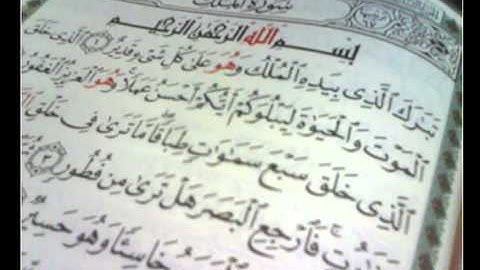 سُورَةُ الْمُلْكِ
بِسْمِ اللَّهِ الرَّحْمَٰنِ الرَّحِيمِ
تَبَٰرَكَ الَّذِي بِيَدِهِ الْمُلْكُ وَهُوَ عَلَىٰ كُلِّ شَيْءٍ قَدِيرٌ ١ الَّذِي خَلَقَ
الْمَوْتَ وَالْحَيَوٰةَ لِيَبْلُوَكُمْ أَيُّكُمْ أَحْسَنُ عَمَلًا وَهُوَ الْعَزِيزُ الْغَفُورُ
الَّذِي خَلَقَ سَبْعَ سَمَٰوَٰتٍ طِبَاقًا مَا تَرَىٰ فِي خَلْقِ
فَارْجِعِ الْبَصَرَ هَلْ تَرَىٰ مِنْ فُطُورٍ ٣
خَاسِئًا وَهُوَ حَسِيرٌ